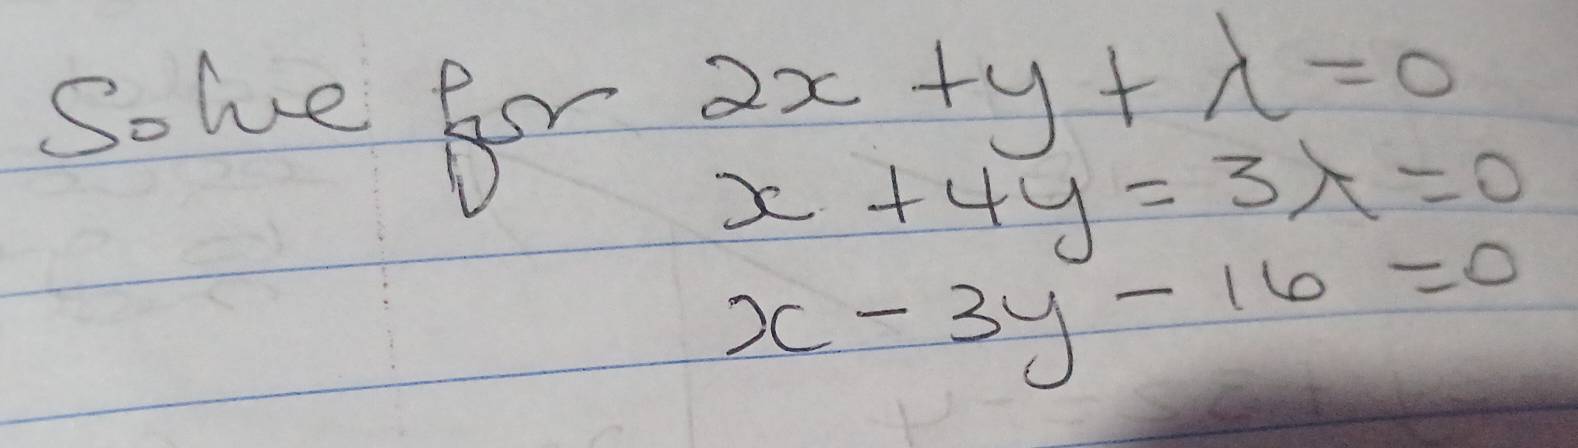 Solve for 2x + y + λ = 0
x + 4y = 3λ = 0
x - 3y - 16 = 0